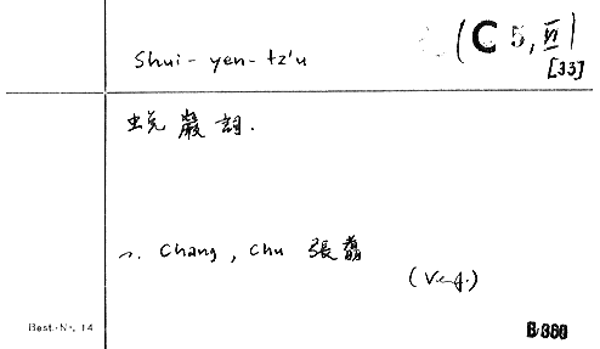 (C 5,
Shui-yen-tz'u
[33]
蛻巖詞.
Chang, Chu 張翥
(Verf.)
Best.-Nr. 14